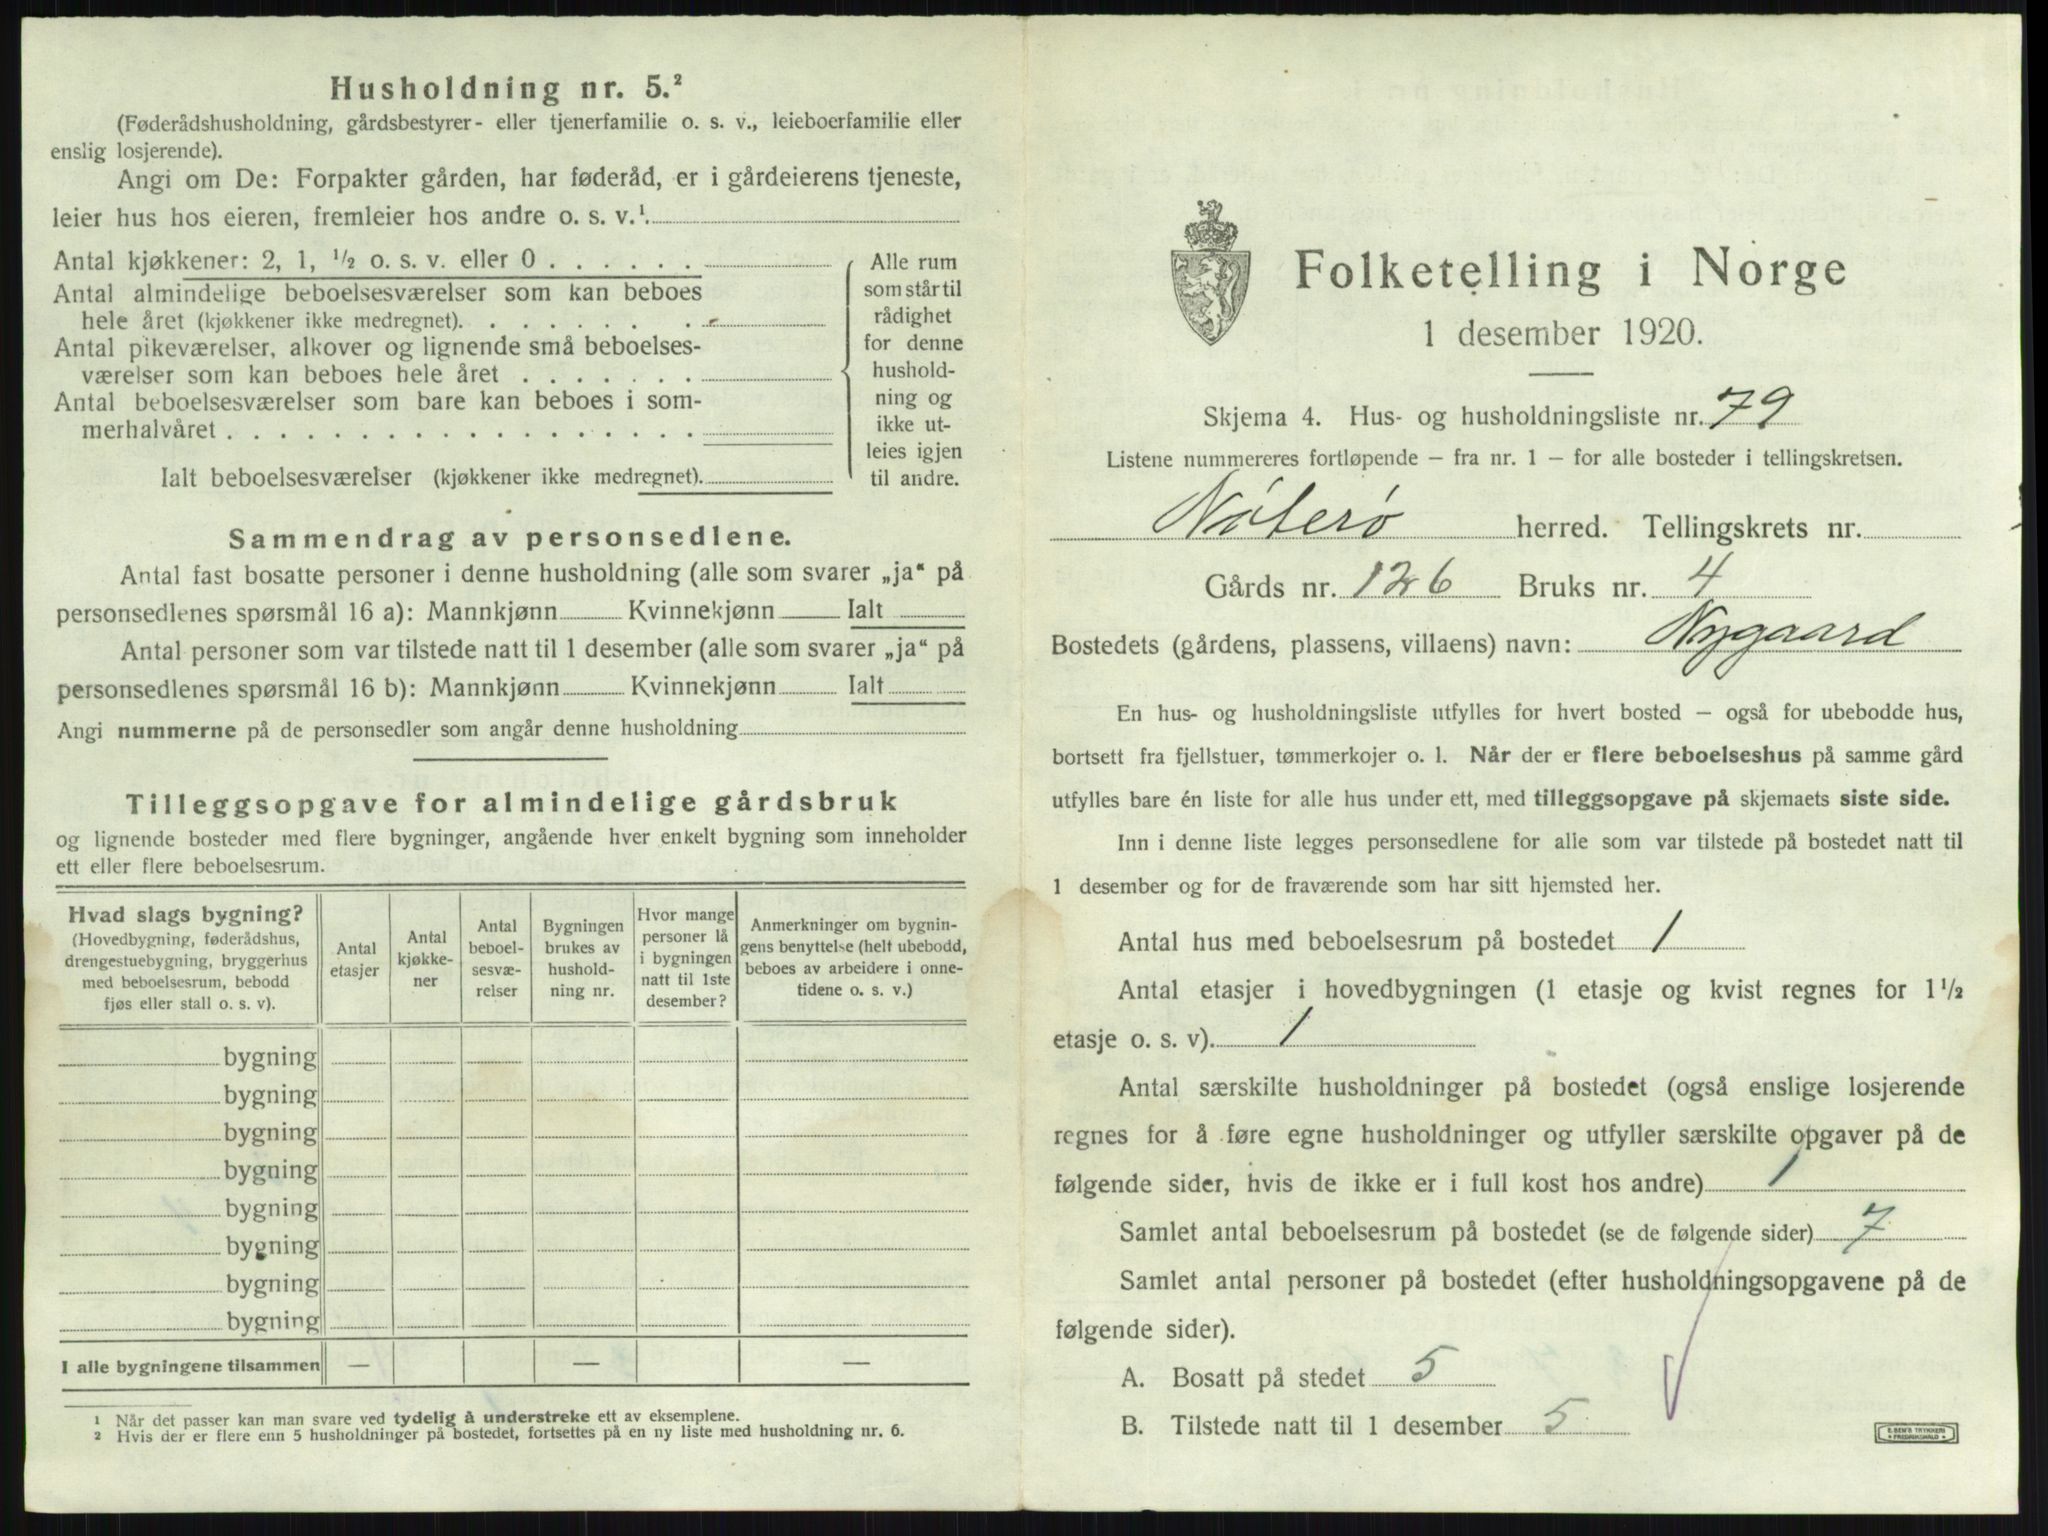 Husholdning nr. 5.²
(Føderådshusholdning, gårdsbestyrer- eller tjenerfamilie o. s. v., leieboerfamilie eller
enslig losjerende).
Angi om De: Forpakter gården, har føderåd, er i gårdeierens tjeneste,
leier hus hos eieren, fremleier hos andre o. s. v.¹
Antal kjøkkener: 2, 1, ½ o. s. v. eller 0 . . . . . .
Antal almindelige beboelsesværelser som kan beboes
hele året (kjøkkener ikke medregnet). . . . . . . .
Antal pikeværelser, alkover og lignende små beboelses-
værelser som kan beboes hele året . . . . . . .
Antal beboelsesværelser som bare kan beboes i som-
merhalvåret . . . . . . . . . . . . . . . . . .
Ialt beboelsesværelser (kjøkkener ikke medregnet).
Alle rum
som står til
rådighet
for denne
hushold-
ning og
ikke ut-
leies igjen
til andre.
Sammendrag av personsedlene.
Antal fast bosatte personer i denne husholdning (alle som svarer „ja“ på
personsedlenes spørsmål 16 a): Mannkjønn Kvinnekjønn Ialt
Antal personer som var tilstede natt til 1 desember (alle som svarer „ja“ på
personsedlenes spørsmål 16 b): Mannkjønn Kvinnekjønn Ialt
Angi nummerne på de personsedler som angår denne husholdning
Tilleggsopgave for almindelige gårdsbruk
og lignende bosteder med flere bygninger, angående hver enkelt bygning som inneholder
ett eller flere beboelsesrum.
Hvad slags bygning?
(Hovedbygning, føderådshus,
drengestuebygning, bryggerhus
med beboelsesrum, bebodd
fjøs eller stall o. s. v).
Antal
etasjer
Antal
kjøkke-
ner
Antal
beboel-
sesvæ-
relser
Bygningen
brukes av
hushold-
ning nr.
Hvor mange
personer lå
i bygningen
natt til 1ste
desember?
Anmerkninger om bygnin-
gens benyttelse (helt ubebodd,
beboes av arbeidere i onne-
tidene o. s. v.)
bygning
bygning
bygning
bygning
bygning
bygning
bygning
bygning
I alle bygningene tilsammen — — —
¹ Når det passer kan man svare ved tydelig å understreke ett av eksemplene.
² Hvis der er flere enn 5 husholdninger på bostedet, fortsettes på en ny liste med husholdning nr. 6.
Folketelling i Norge
1 desember 1920.
Skjema 4. Hus- og husholdningsliste nr. 79
Listene nummereres fortløpende – fra nr. 1 – for alle bosteder i tellingskretsen.
Nøterø herred. Tellingskrets nr.
Gårds nr. 126 Bruks nr. 4
Bostedets (gårdens, plassens, villaens) navn: Nygaard
En hus- og husholdningsliste utfylles for hvert bosted – også for ubebodde hus,
bortsett fra fjellstuer, tømmerkojer o. l. Når der er flere beboelseshus på samme gård
utfylles bare én liste for alle hus under ett, med tilleggsopgave på skjemaets siste side.
Inn i denne liste legges personsedlene for alle som var tilstede på bostedet natt til
1 desember og for de fraværende som har sitt hjemsted her.
Antal hus med beboelsesrum på bostedet 1
Antal etasjer i hovedbygningen (1 etasje og kvist regnes for 1½
etasje o. s. v). 1
Antal særskilte husholdninger på bostedet (også enslige losjerende
regnes for å føre egne husholdninger og utfyller særskilte opgaver på de
følgende sider, hvis de ikke er i full kost hos andre) 1
Samlet antal beboelsesrum på bostedet (se de følgende sider) 7
Samlet antal personer på bostedet (efter husholdningsopgavene på de
følgende sider).
A. Bosatt på stedet 5
B. Tilstede natt til 1 desember 5
E. SEM'S TRYKKERI
• FREDRIKSHALD •